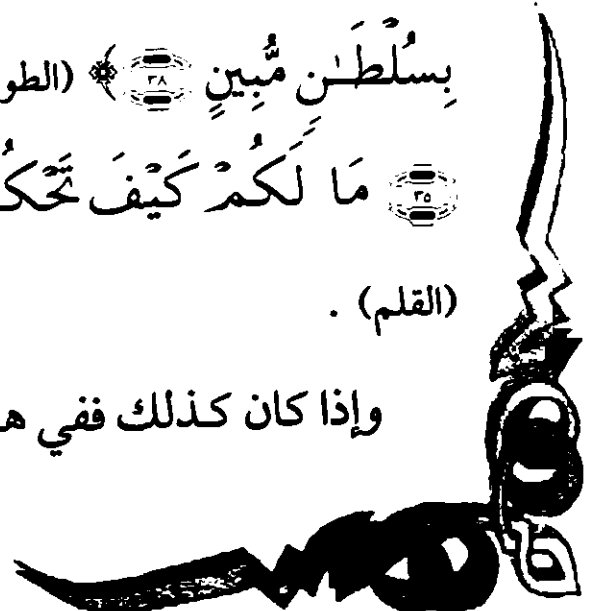 بِسُلْطَـٰنٍ مُّبِينٍ ٣٨ ﴾ (الطو
٣٥ مَا لَكُمْ كَيْفَ تَحْكُ
(القلم) .
وإذا كان كـذلك ففي هـ